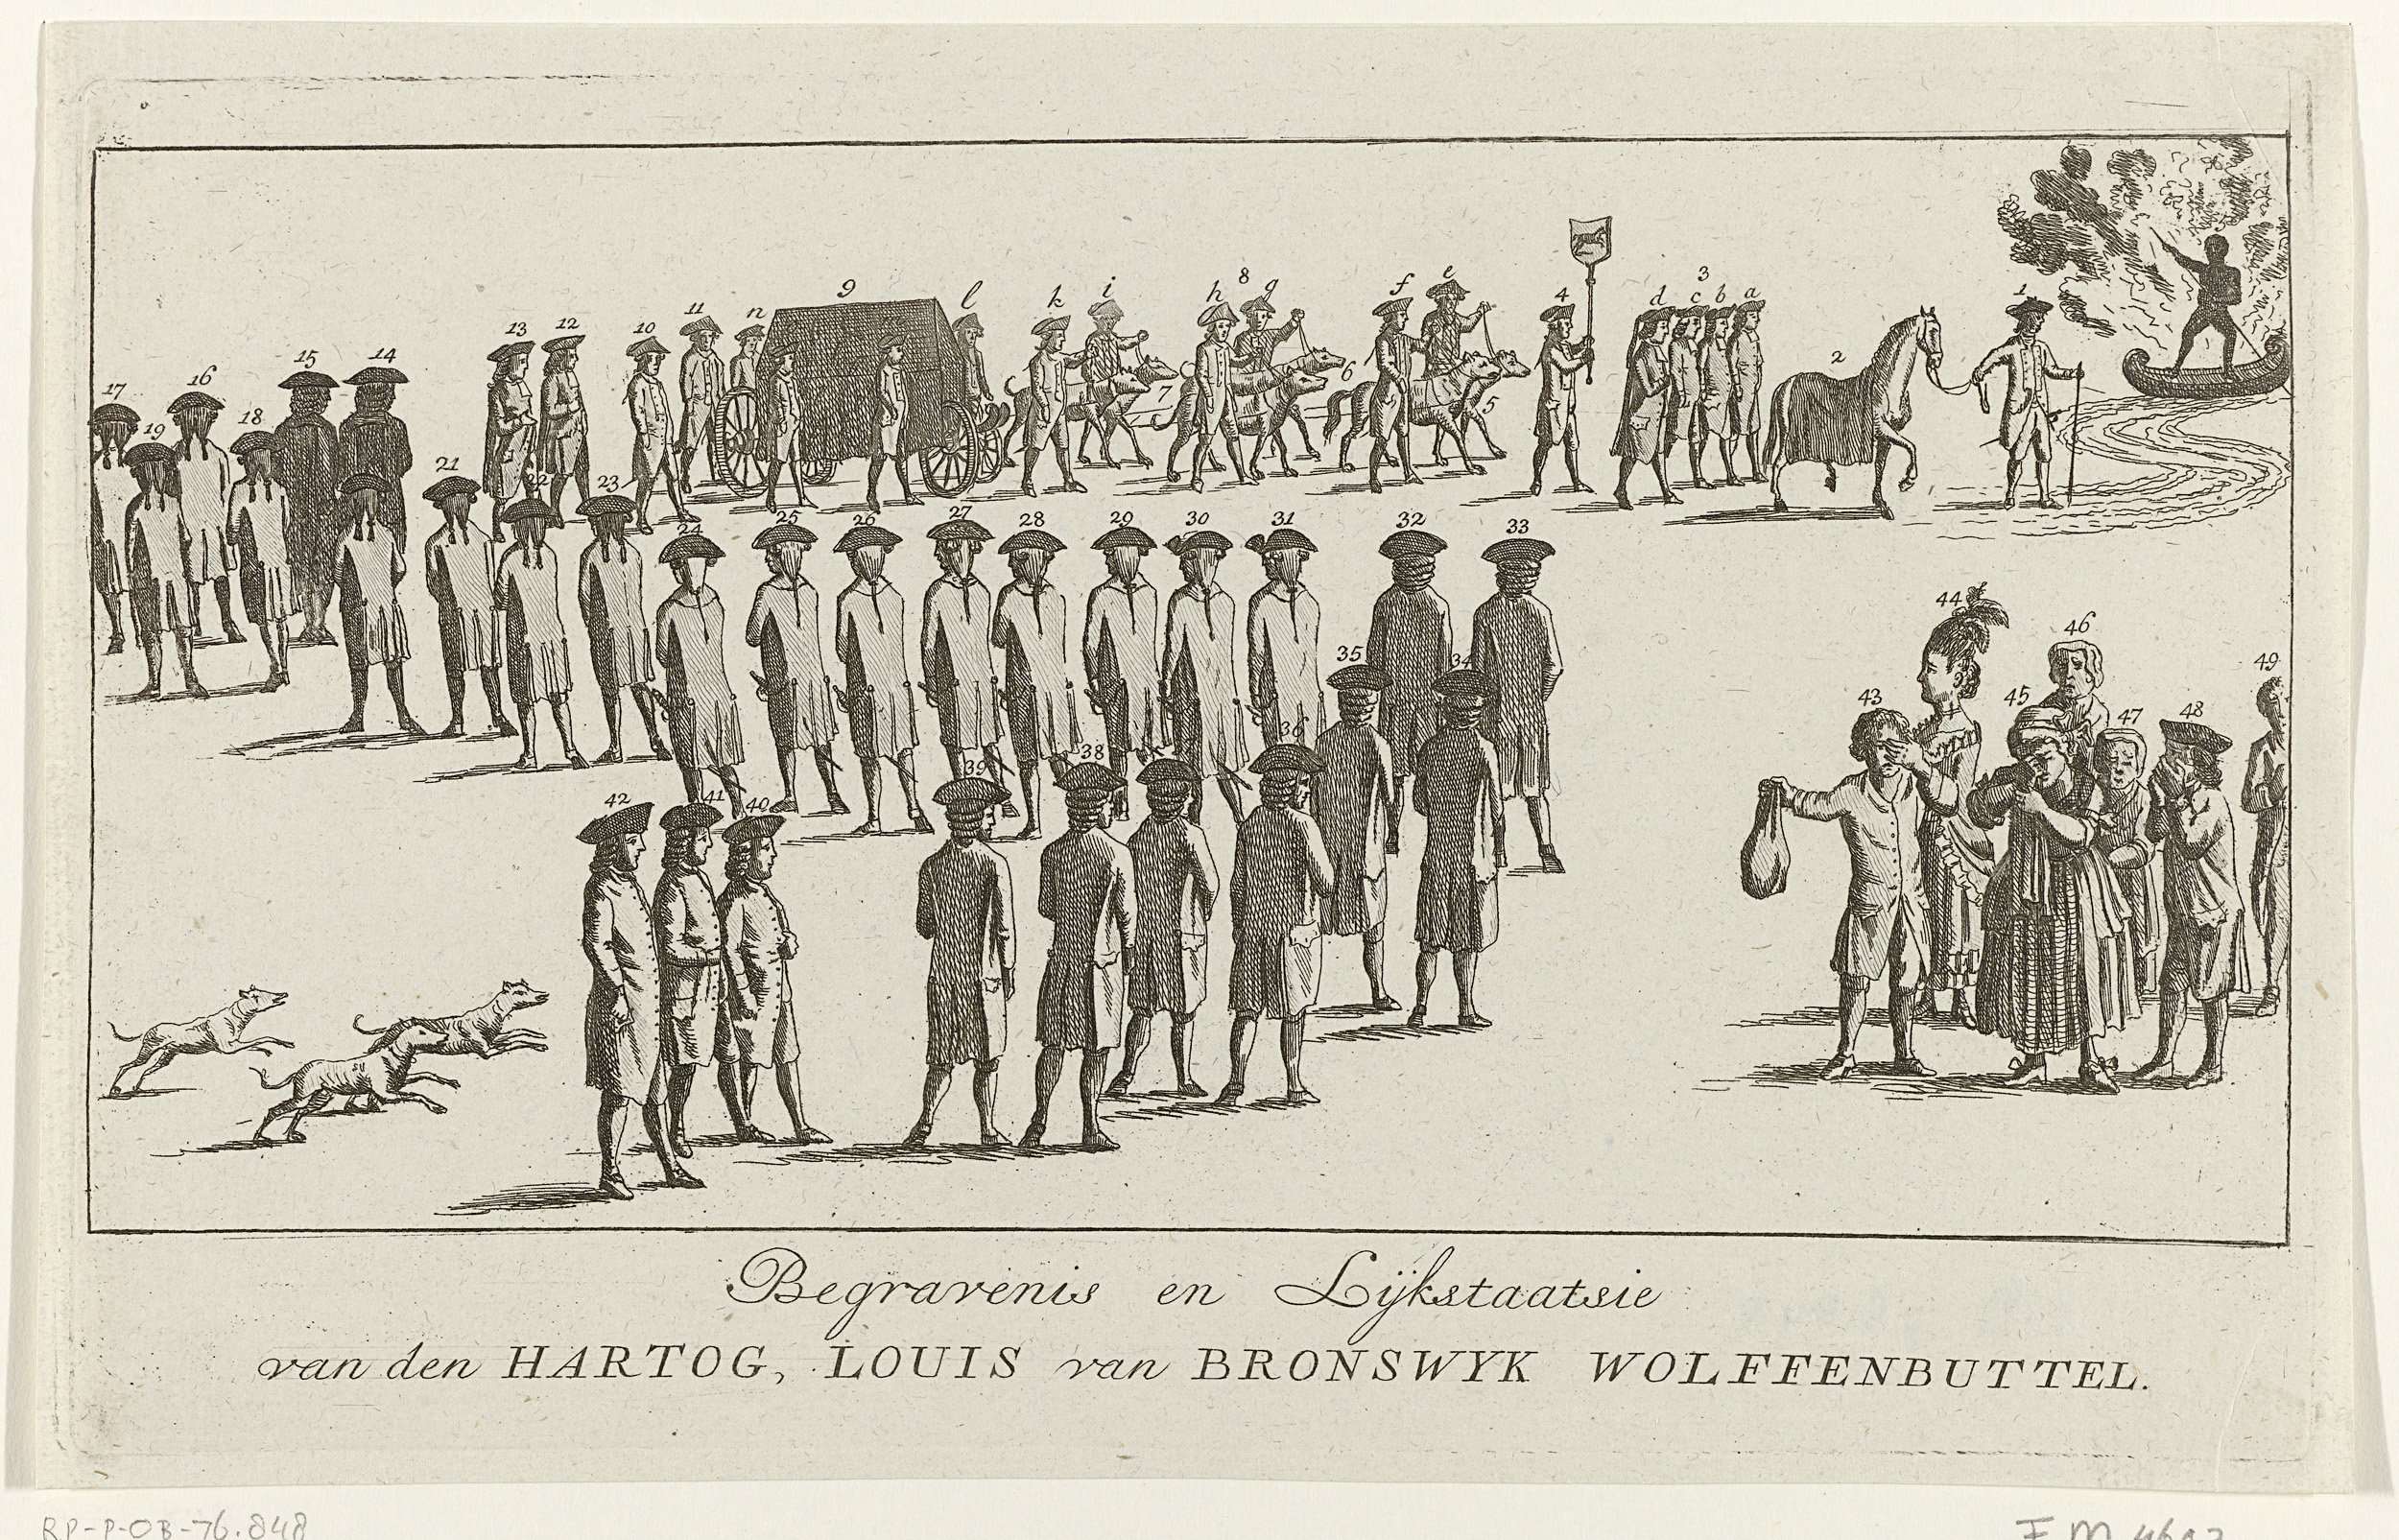 8
e
i
h
g
f
3
l
k
4
d
c
b
a
1
9
n
11
10
12
13
2
6
7
5
14
15
16
17
18
19
21
22
23
24
25
26
27
28
29
30
31
32
33
44
46
35
34
43
45
47
48
49
36
38
39
42
41
40
Begravenis en Lijkstaatsie
van den HARTOG, LOUIS van BRONSWYK WOLFFENBUTTEL.
RP-P-OB-76.848